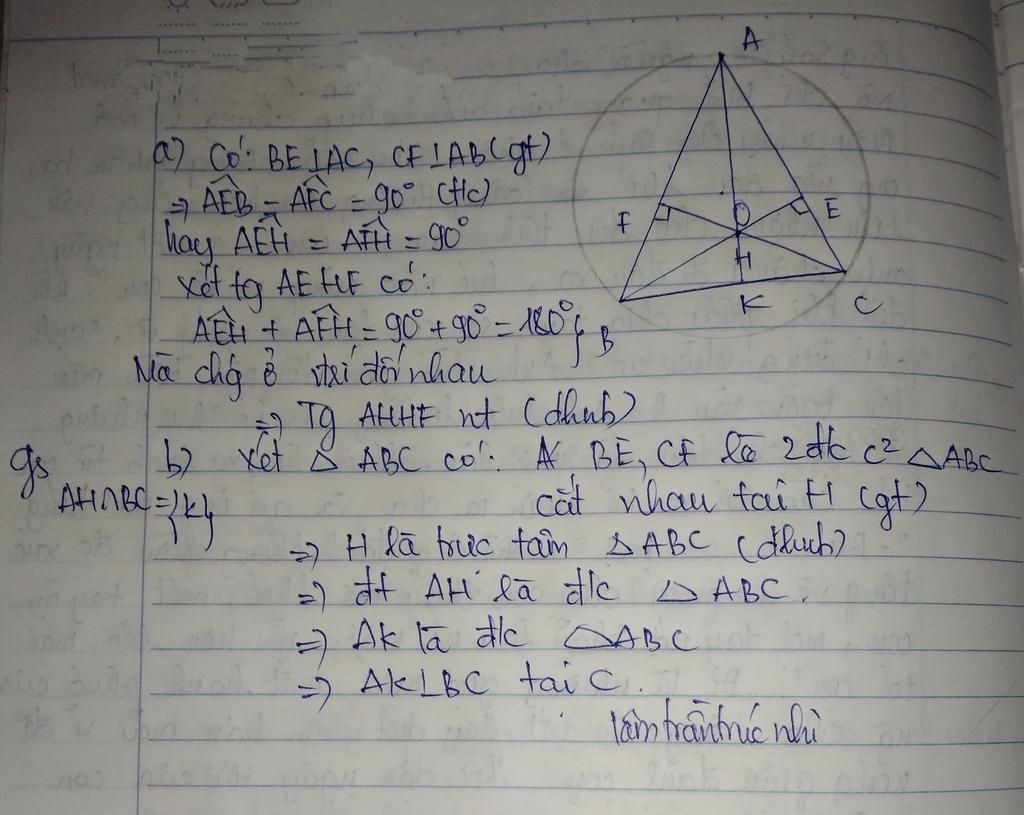 a) Có: BE⊥AC, CF⊥AB (gt)
⇒ AÊB = AF̂C = 90° (t/c)
hay AÊH = AF̂H = 90°
xét tg AEHF có:
AÊH + AF̂H = 90° + 90° = 180°
Mà chg ở vtrí đối nhau
⇒ Tg AHHF nt (dhnb)
b) xét △ ABC có: BE, CF là 2 đk c² △ABC
cắt nhau tại H (gt)
gs
AH∩BC={K}
⇒ H là trực tâm △ABC (dhnb)
⇒ đt AH là đk △ ABC.
⇒ AK là đk △ABC
⇒ AK⊥BC tại C.
lâm trần trúc nhi
A
F
O
E
H
B
K
C